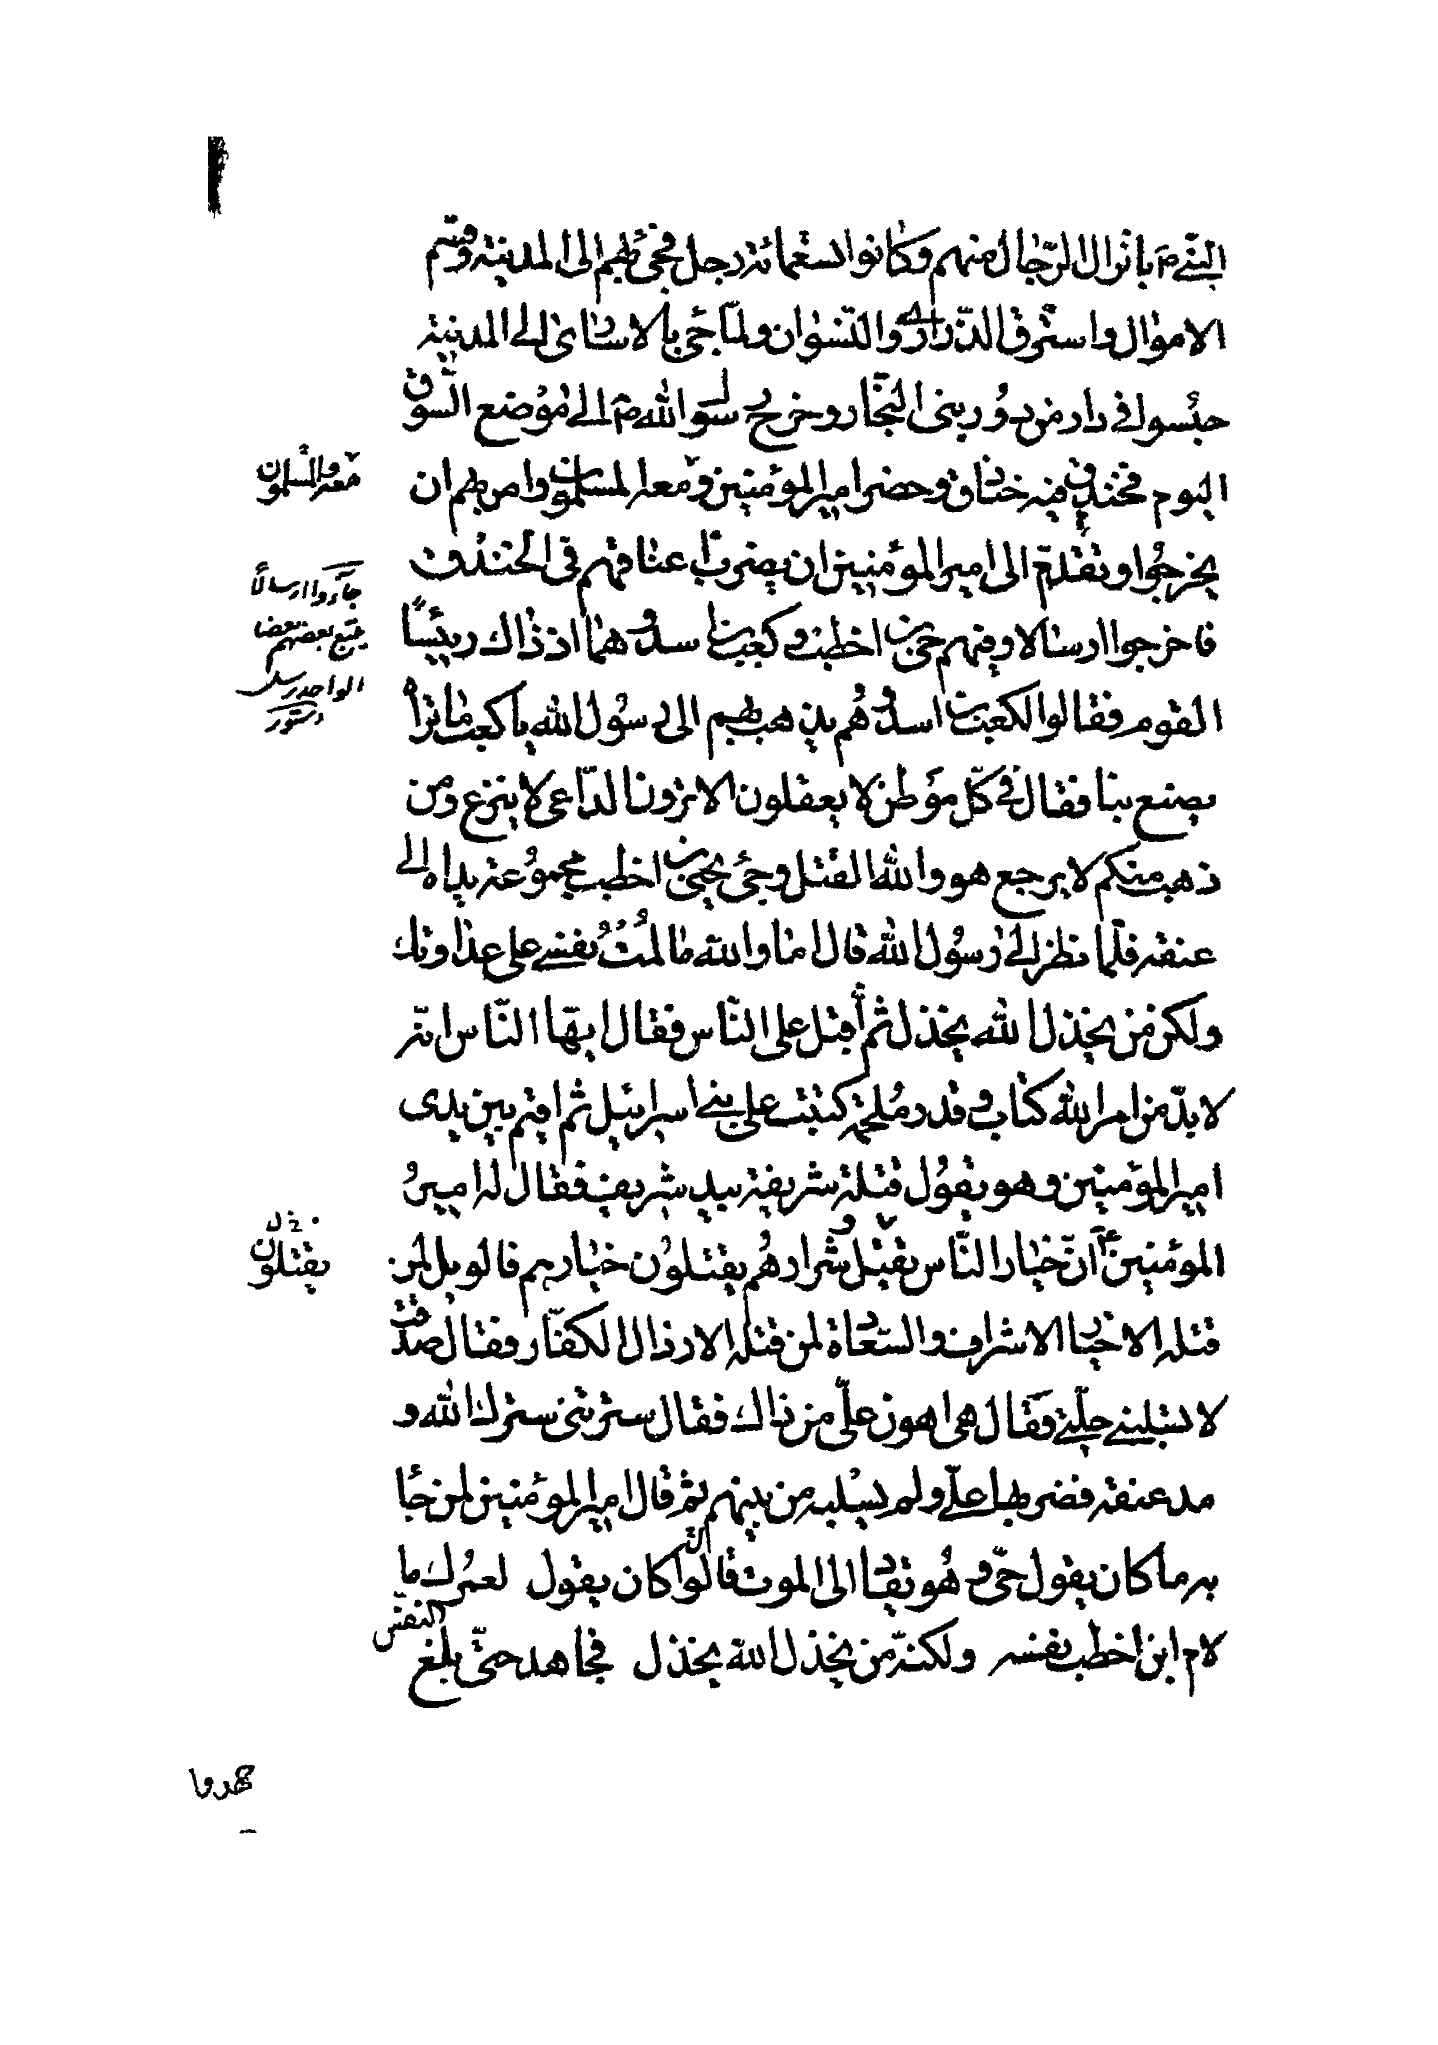 النّبيّ ص بانزال الرّجال منهم وكانوا تسعمائة رجل فجئ بهم الى المدينة وقسّم
الاموال واسترق الذّراري والنّسوان ولمّا جئ بالاسارى الى المدينة
حبسوا في دار من دور بنى النجّار وخرج رسول الله ص الى موضع السّوق
اليوم فخندق فيه خنادق وحضر امير المؤمنين ومعه المسلمون وامر بهم ان
معه والمسلمون
يخرجوا وتقدّم الى امير المؤمنين ان يضرب اعناقهم فى الخندق
فاخرجوا ارسالا وفيهم حيّ بن اخطب وكعب بن اسد وهما اذ ذاك رئيسا
جاؤوا ارسالاً
يتبع بعضهم بعضا
الواحد رسل
دستور
القوم فقالوا لكعب بن اسد وهم يذهب بهم الى رسول الله يا كعب ما تراه
يصنع بنا فقال في كلّ موطن لا يعقلون الا ترون الدّاعى لا ينزع ومن
ذهب منكم لا يرجع هو والله القتل وجئ بحيّ بن اخطب مجموعة يداه الى
عنقه فلمّا نظر الى رسول الله قال اما والله ما لمت نفسي على عداوتك
ولكن من يخذل الله يخذل ثم أقبل على النّاس فقال ايّها النّاس انّه
لا بدّ من امر الله كتاب وقدر وملحمة كتبت على بني اسرائيل ثم اقيم بين يدى
امير المؤمنين وهو يقول قتلة شريفة بيد شريف فقال له امير
المؤمنين ع انّ خيار النّاس يقتل شرارهم يقتلون خيارهم فالويل لمن
يقتلون
قتله الاخيار الاشراف والسّعادة لمن قتله الارذال الكفّار فقال صدقت
لا تسلبني حلّتي فقال هى اهون علىّ من ذاك فقال سترتنى سترك الله و
مد عنقه فضربها علي ولم يسلبه من بينهم ثم قال امير المؤمنين لمن جا
به ما كان يقول حيّ وهو يقاد الى الموت قالوا كان يقول لعمرك ما
لام ابن اخطب نفسه ولكنّه من يخذل الله يخذل فجاهد حتى بلغ النفس
جهدها